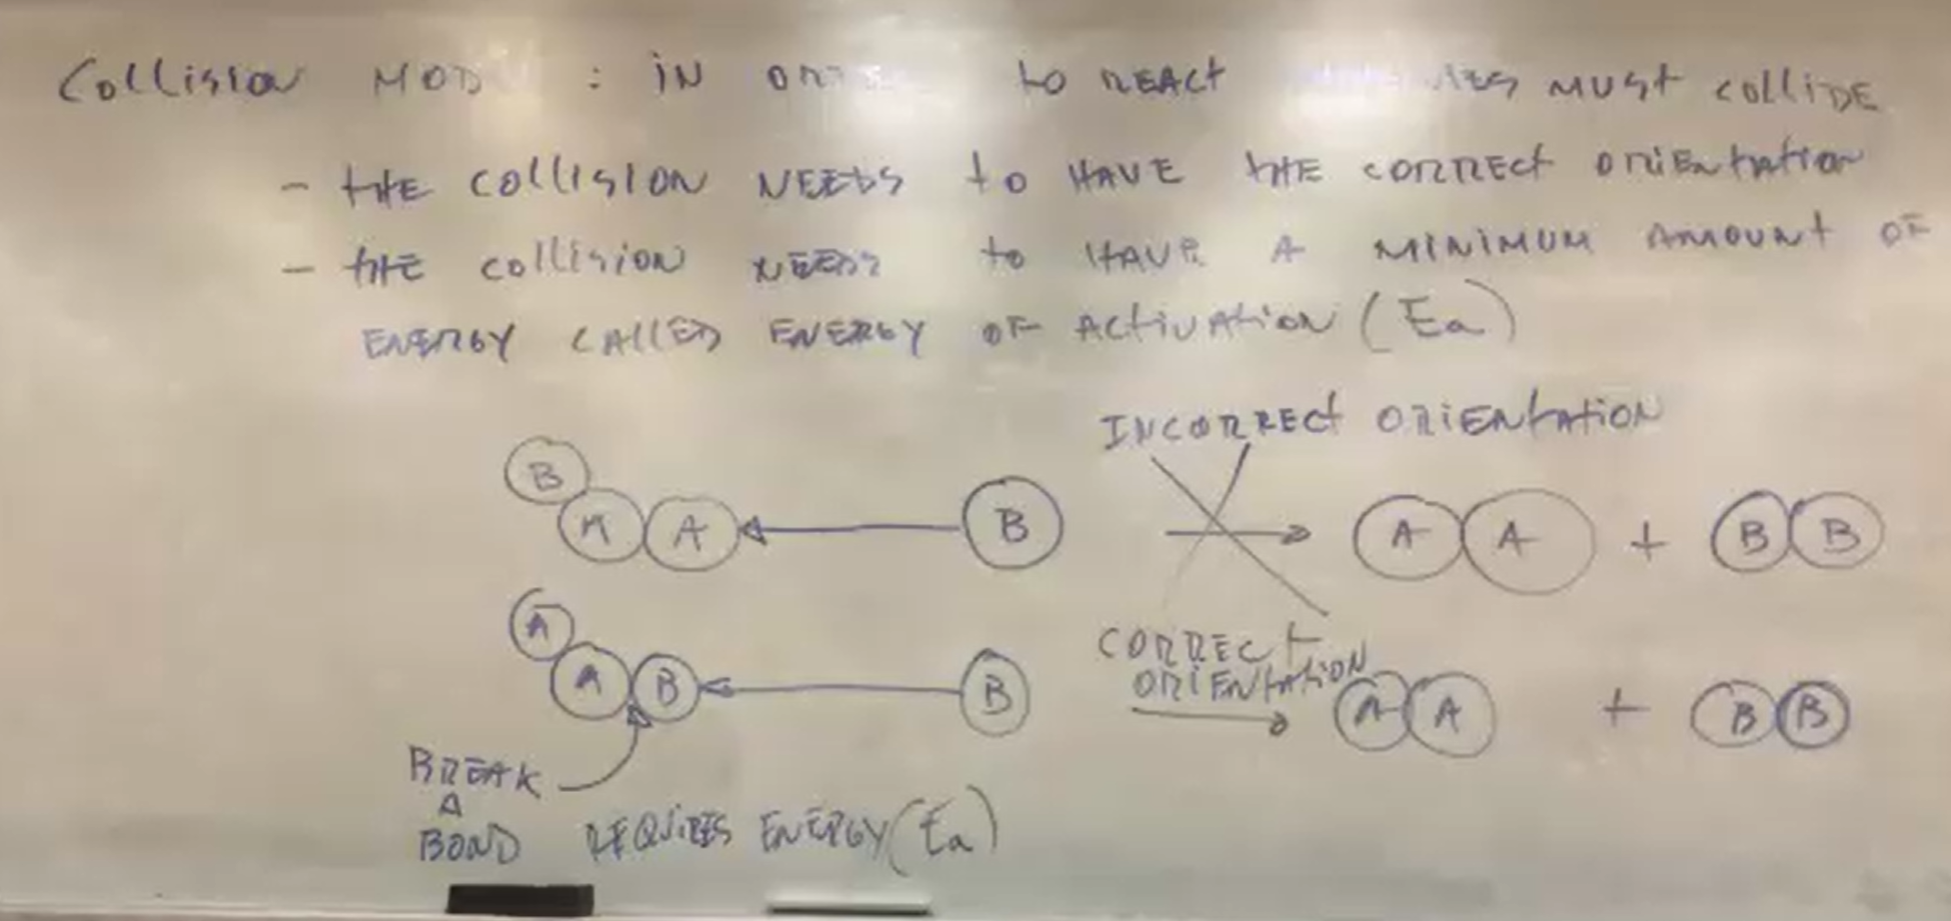 COLLISION MOD : IN TO REACT MUST COLLIDE
- THE COLLISION NEEDS TO HAVE THE CORRECT ORIENTATION
- THE COLLISION NEEDS TO HAVE A MINIMUM AMOUNT OF
ENERGY CALLED ENERGY OF ACTIVATION (Ea)
INCORRECT ORIENTATION
B
A A B A A + B B
A
A B B CORRECT
ORIENTATION
A A + B B
BREAK
A
BOND REQUIRES ENERGY (Ea)